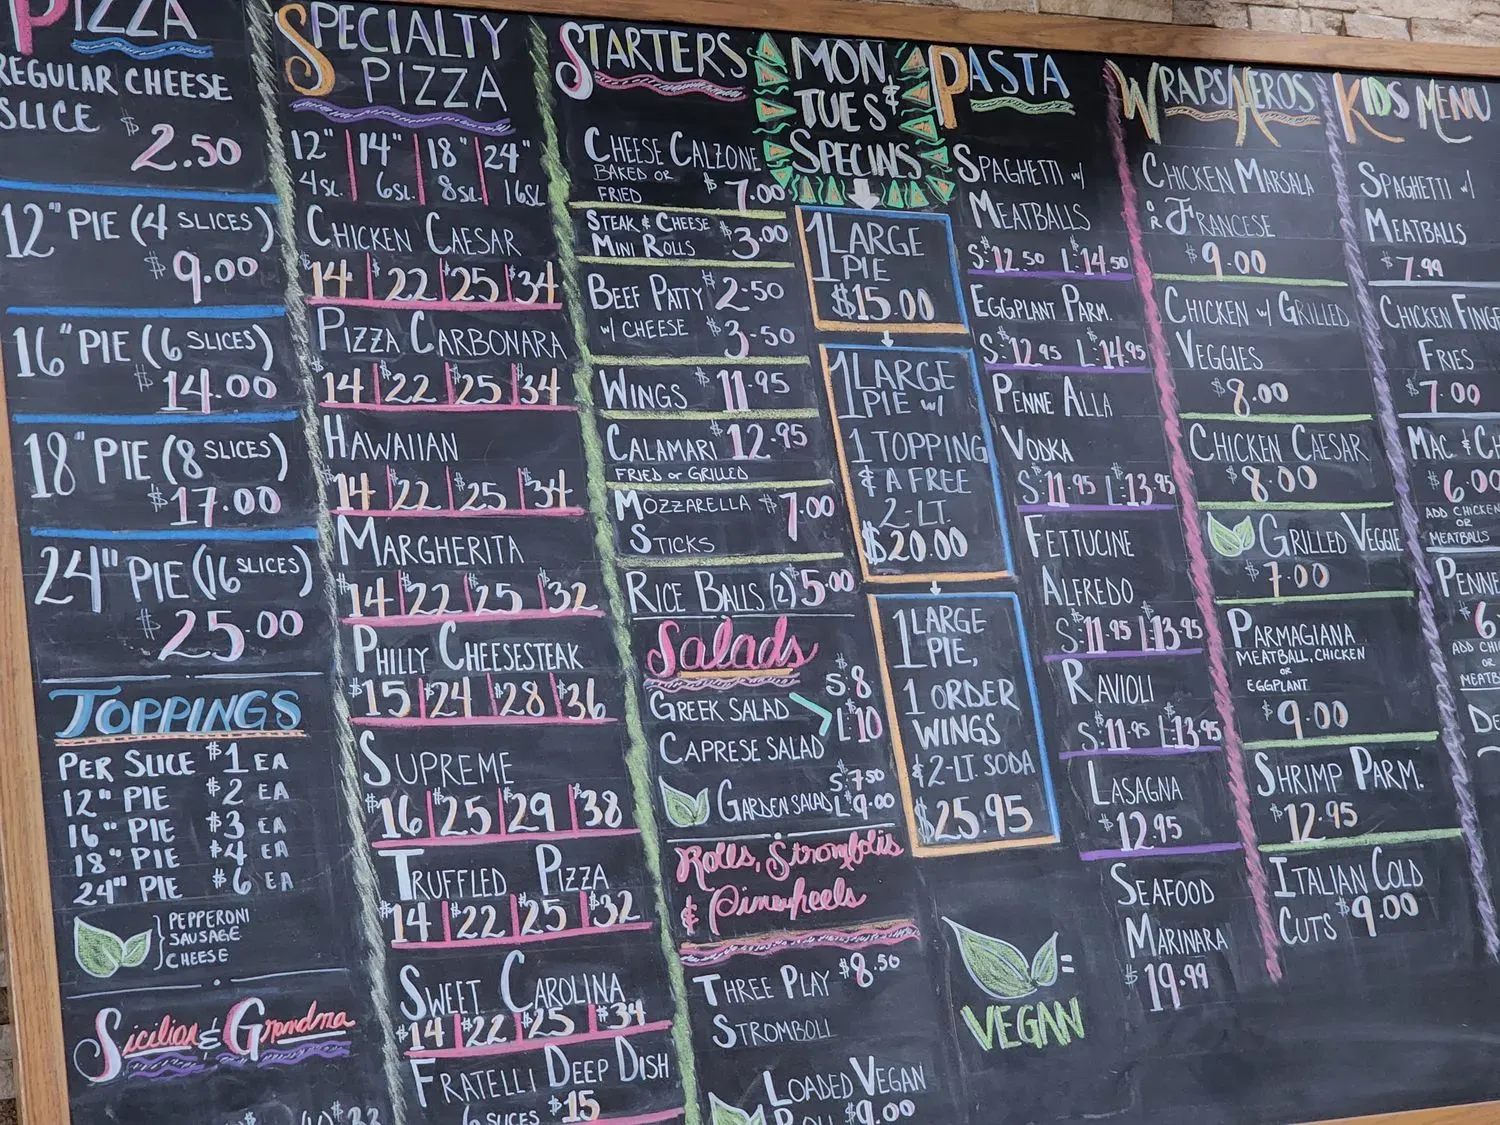 PIZZA
REGULAR CHEESE
SLICE $2.50
12" PIE (4 SLICES)
$9.00
16" PIE (6 SLICES)
$14.00
18" PIE (8 SLICES)
$17.00
24" PIE (16 SLICES)
$25.00
TOPPINGS
PER SLICE $1 EA
12" PIE $2 EA
16" PIE $3 EA
18" PIE $4 EA
24" PIE $6 EA
PEPPERONI
SAUSAGE
CHEESE
Sicilian & Grandma
SPECIALTY
PIZZA
12" 14" 18" 24"
4SL. 6SL. 8SL 16SL
CHICKEN CAESAR
$14 $22 $25 $34
PIZZA CARBONARA
$14 $22 $25 $34
HAWAIIAN
$14 $22 $25 $34
MARGHERITA
$14 $22 $25 $32
PHILLY CHEESESTEAK
$15 $24 $28 $36
SUPREME
$16 $25 $29 $38
TRUFFLED PIZZA
$14 $22 $25 $32
SWEET CAROLINA
$14 $22 $25 $34
FRATELLI DEEP DISH
6 SLICES $15
STARTERS
CHEESE CALZONE
BAKED OR
FRIED $7.00
STEAK & CHEESE
MINI ROLLS $3.00
BEEF PATTY $2.50
W/ CHEESE $3.50
WINGS $11.95
CALAMARI $12.95
FRIED OR GRILLED
MOZZARELLA $7.00
STICKS
RICE BALLS (2) $5.00
Salads
GREEK SALAD S $8
CAPRESE SALAD L $10
GARDEN SALAD S $7.50 L $9.00
Rolls, Strombolis
& Pinwheels
THREE PLAY $8.50
STROMBOLL
LOADED VEGAN
ROLL $9.00
MON &
TUES
SPECIALS
1 LARGE
PIE
$15.00
1 LARGE
PIE W/
1 TOPPING
& A FREE
2-LT.
$20.00
1 LARGE
PIE,
1 ORDER
WINGS
& 2-LT. SODA
$25.95
= VEGAN
PASTA
SPAGHETTI W/
MEATBALLS
S:$12.50 L:$14.50
EGGPLANT PARM.
S:$12.95 L:$14.95
PENNE ALLA
VODKA
S:$11.95 L:$13.95
FETTUCINE
ALFREDO
S:$11.95 L:$13.95
RAVIOLI
S:$11.95 L:$13.95
LASAGNA
$12.95
SEAFOOD
MARINARA
$19.99
WRAPS/HEROS
CHICKEN MARSALA
OR FRANCESE
$9.00
CHICKEN W/ GRILLED
VEGGIES
$8.00
CHICKEN CAESAR
$8.00
GRILLED VEGGIE
$7.00
PARMAGIANA
MEATBALL, CHICKEN
OR
EGGPLANT
$9.00
SHRIMP PARM.
$12.95
ITALIAN COLD
CUTS $9.00
KIDS MENU
SPAGHETTI W/
MEATBALLS
$7.99
CHICKEN FINGE
FRIES
$7.00
MAC & CH
$6.00
ADD CHICKEN
OR
MEATBALLS
PENNE
$6
ADD CHI
OR
MEATB
DE